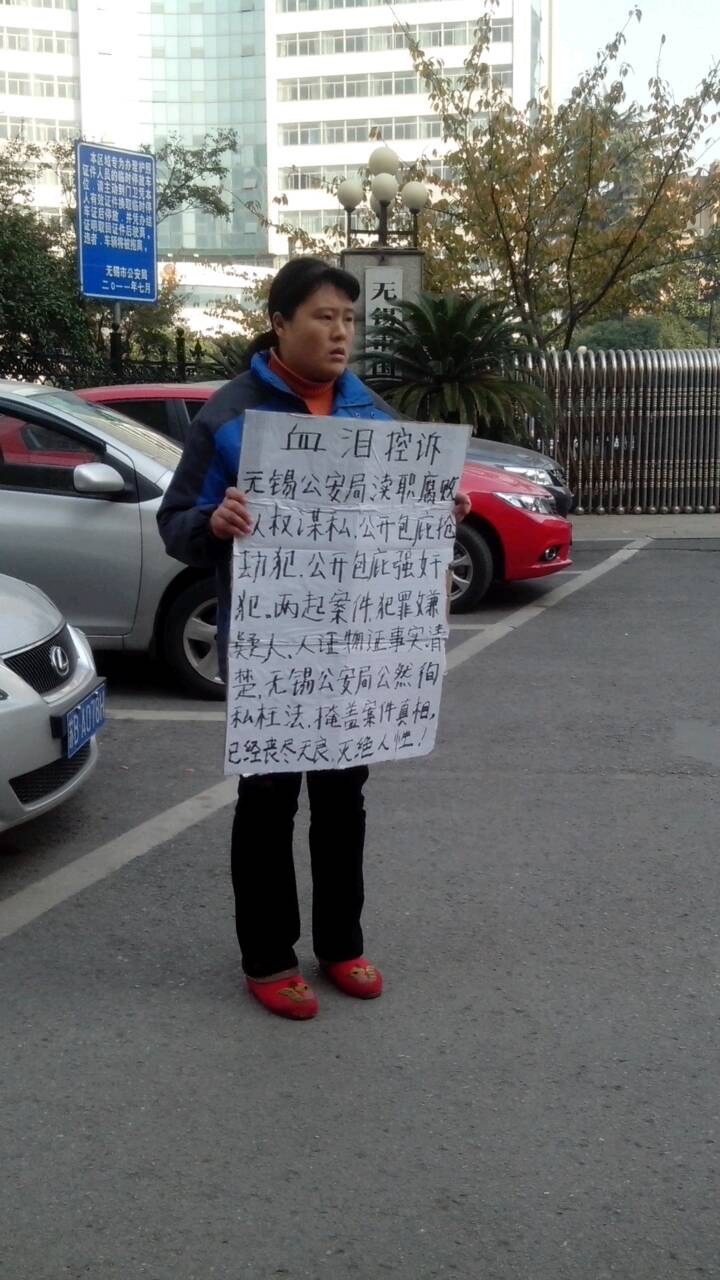 本区域专为办理护照
证件人员的临时停车
位，请主动到门卫凭本
人有效证件换取临时停
车证后停放，并凭办结
证明取回证件后驶离。
违者，车辆将被拖离。
无锡市公安局
二〇一一年七月
无锡
血泪控诉
无锡公安局渎职腐败
以权谋私.公开包庇抢
劫犯.公开包庇强奸
犯。两起案件.犯罪嫌
疑人.人证物证事实清
楚.无锡公安局公然徇
私枉法.掩盖案件真相,
已经丧尽天良.灭绝人性!